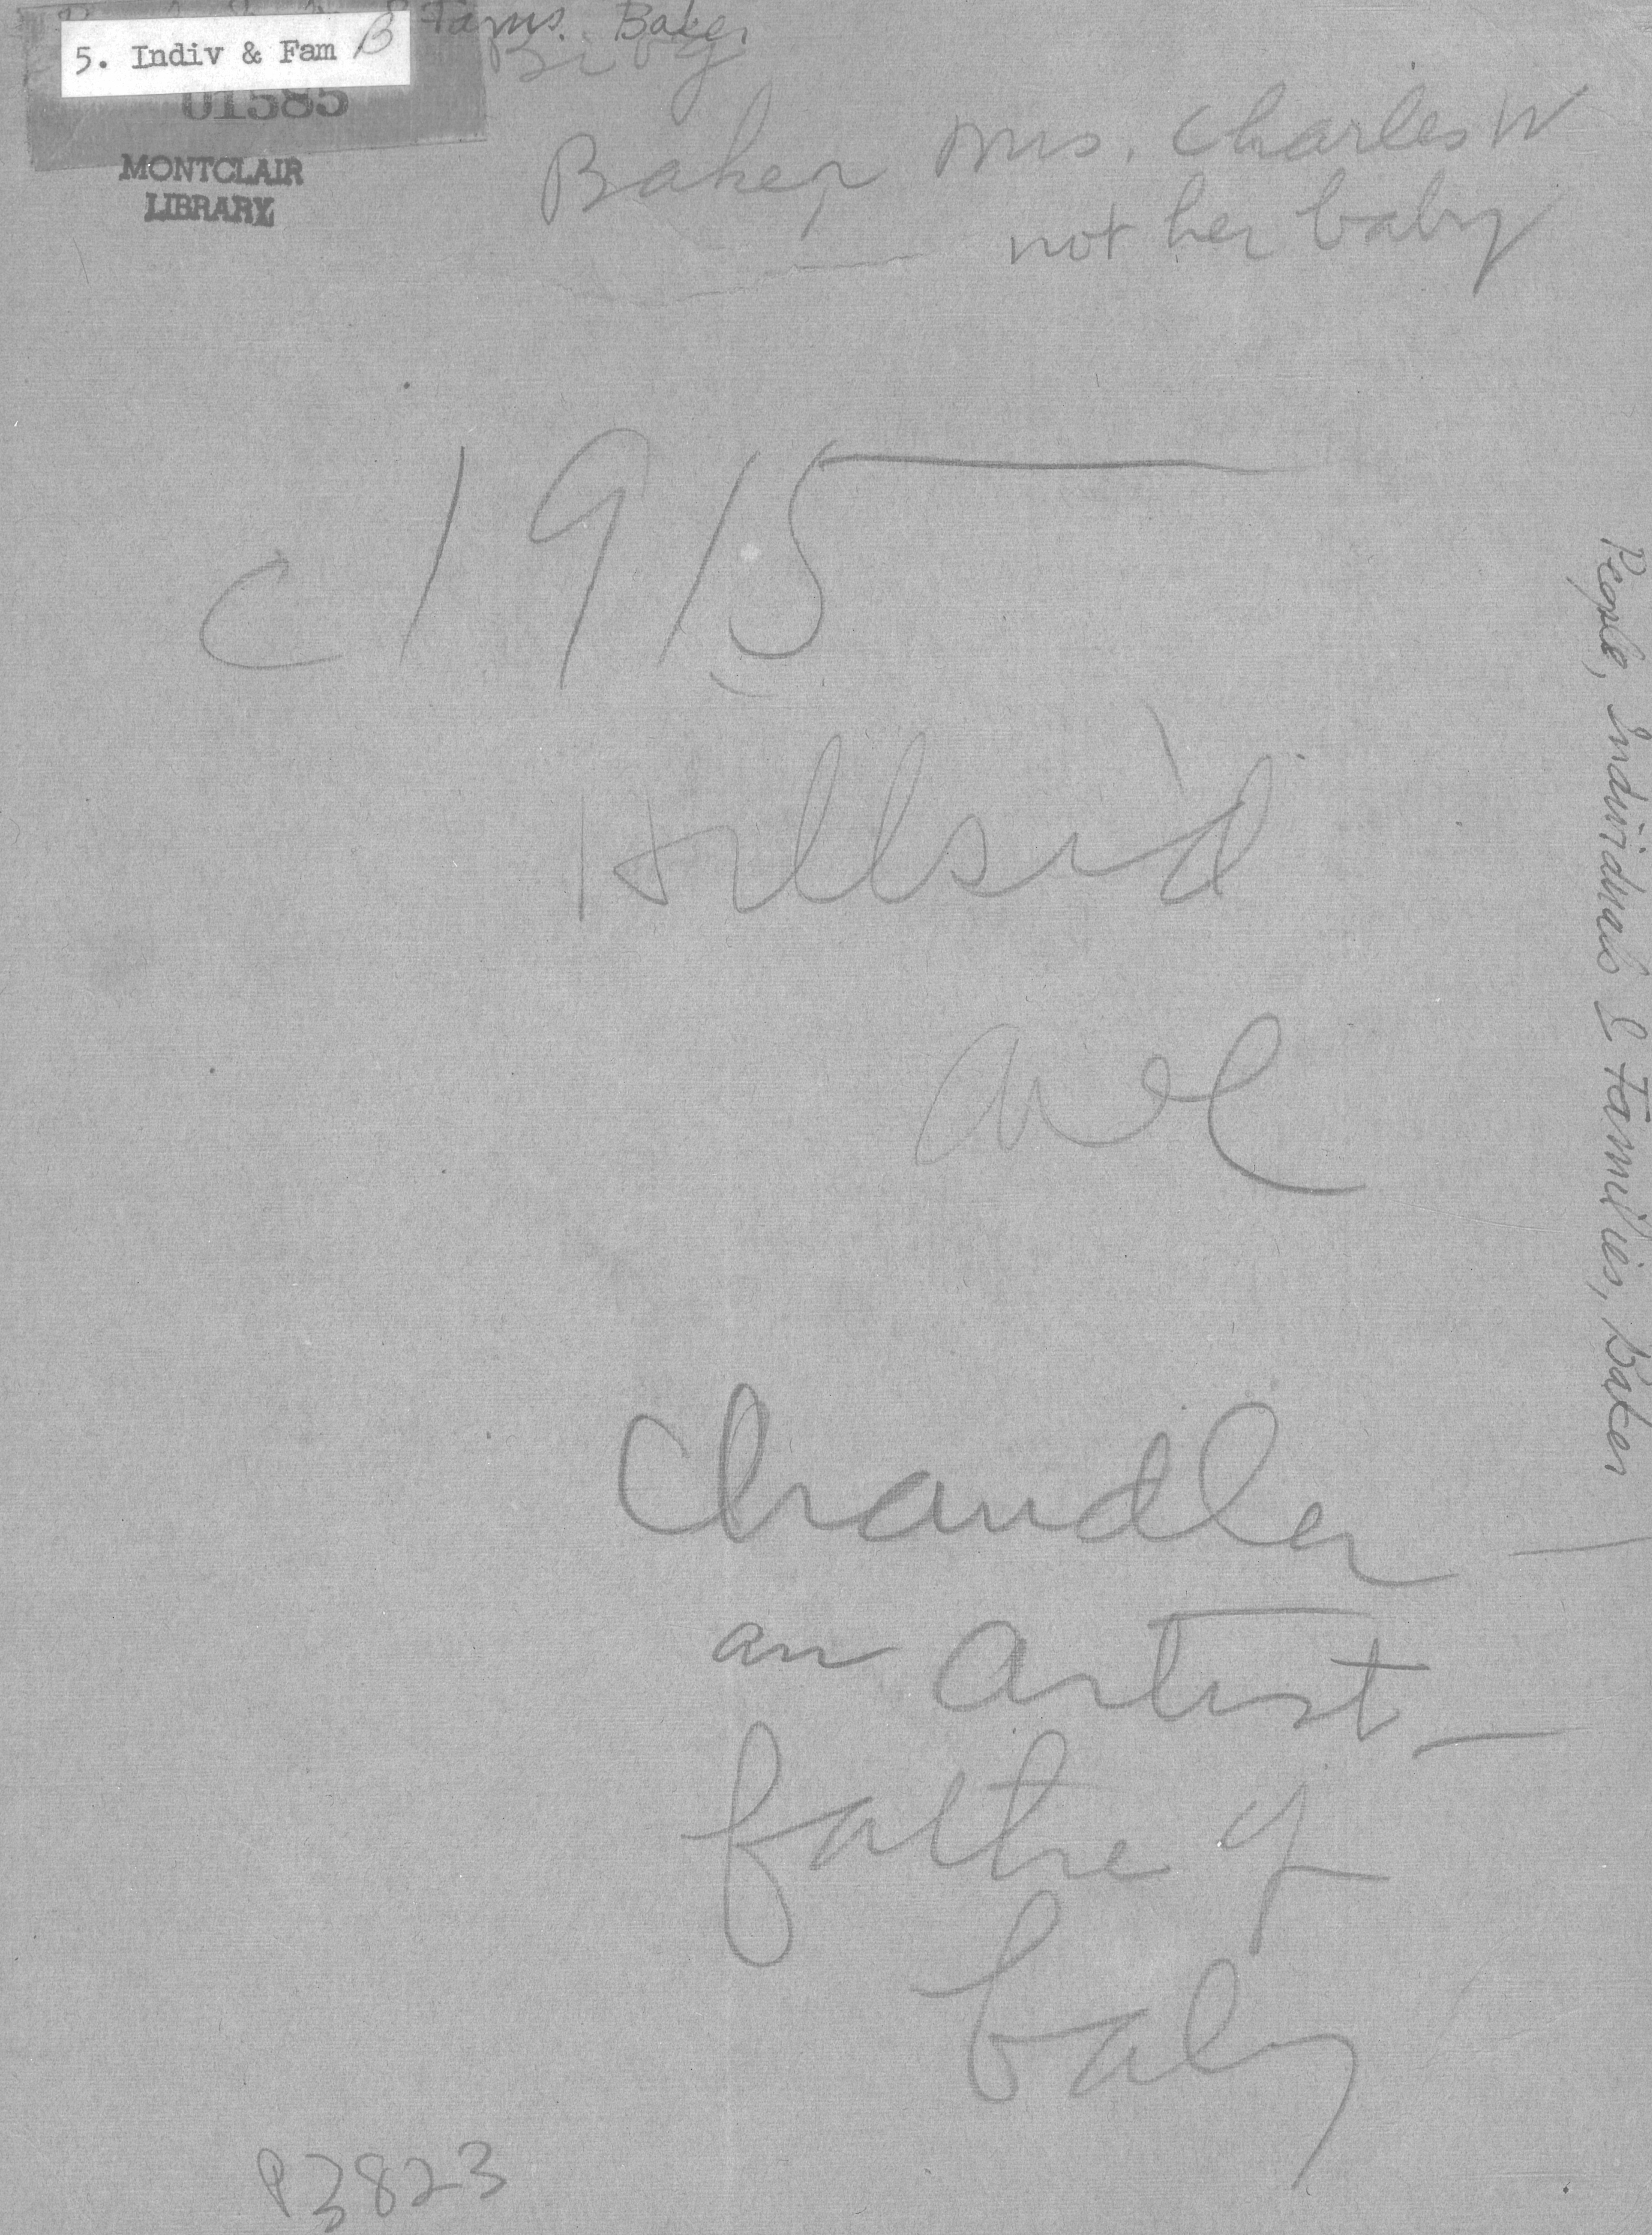 Fams. Baker
5. Indiv & Fam B
Biog
01585
MONTCLAIR
LIBRARY
Baker, Mrs. Charles W
not her baby
c 1915
Hillsid
ave
Chandler
an artist —
fathe of
baby
P3823
People, Individuals & Families, Baker